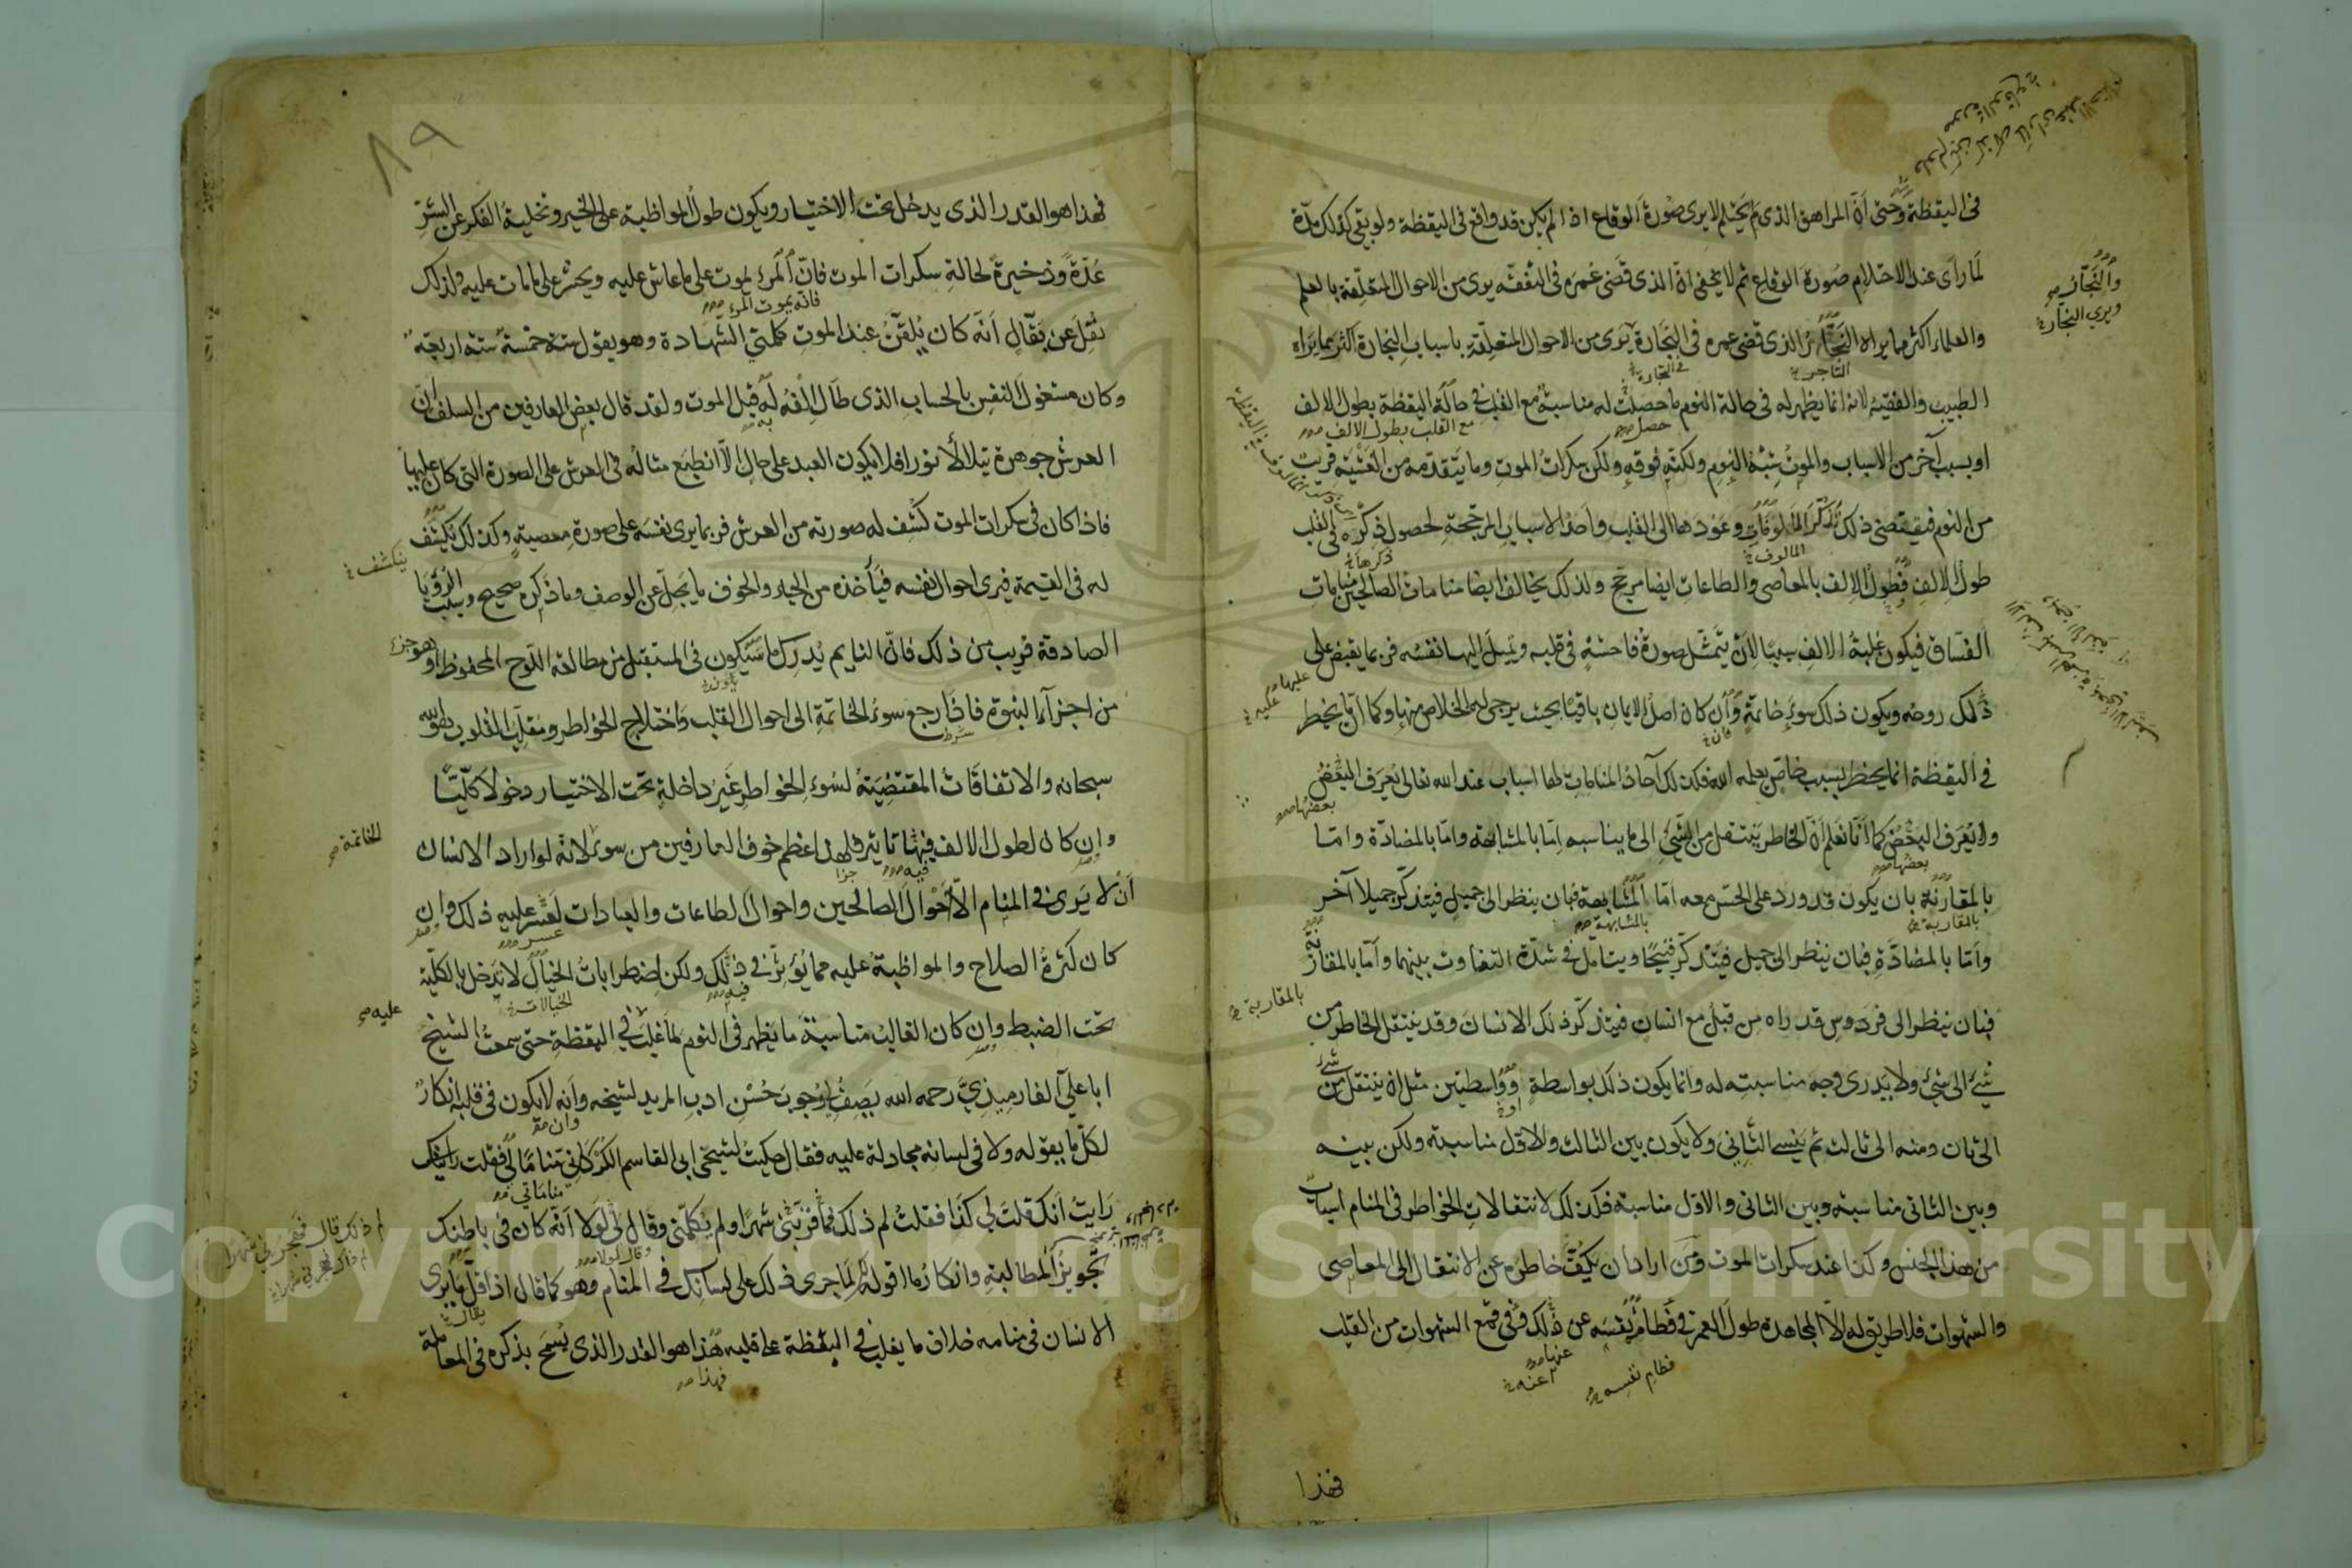 في اليقظة وحتى أن المراهق الذى لم يحتلم لا يرى صورة الوقاع اذا لم يكن قد واقع فى اليقظة ولو بقي كذلك مدّة
لما رأى عند الاحتلام صورة الوقاع ثم لا يخفى انّ الذى قضى عمره فى التفقه يرى من الاحوال المتعلّقة بالعلم
والعلماء اكثر مما يراه النجّار الذى قضى عمره فى النجارة يرى من الاحوال المتعلّقة باسباب النجارة اكثر مما يراه
الطبيب والفقيه لانه انما يظهر له فى حالة النوم ما حصلت له مناسبة مع القلب في حالة اليقظة بطول الالف
او بسبب آخر من الاسباب والموت شبه النوم ولكنه فوقه ولكن سكرات الموت وما يتقدّمه من الغشية قريب
من النوم فيقتضى ذلك تذكّر المألوفات وعودها الى القلب وأحد الاسباب المرجّحة لحصول ذكره فى القلب
طول الالف فطول الالف بالمعاصى والطاعات ايضا مرجّح ولذلك يخالف ايضا منامات الصالحين منامات
الفسّاق فيكون غلبة الالف سببا لأن يتمثّل صورة فاحشة فى قلبه ويميل اليها نفسه فربما يقبض على
ذلك روحه ويكون ذلك سوء خاتمة وأن كان اصل الايمان باقيا بحيث يرجى له الخلاص منها وكما ان ما يخطر
في اليقظة انما يخطر بسبب خاص يعلمه الله فكذلك آحاد المنامات لها اسباب عند الله تعالى يعرف البعض
ولا يعرف البعض كما أنّا نعلم أن الخاطر ينتقل من الشيئ الى ما يناسبه امّا بالمشابهة وامّا بالمضادّة وامّا
بالمقارنة بان يكون قد ورد على الحسّ معه امّا المشابهة فبان ينظر الى جميل فيتذكّر جميلا آخر
وأمّا بالمضادّة فبان ينظر الى جميل فيتذكّر قبيحا ويتأمّل في شدّة التفاوت بينهما وأمّا بالمقارنة
فبان ينظر الى فردوس قد راه من قبل مع انسان فيتذكّر ذلك الانسان وقد ينتقل الخاطر من
شيئ الى شيئ ولا يدرى وجه مناسبته له وانما يكون ذلك بواسطة وواسطتين مثل ان ينتقل من شيئ
الى ثان ومنه الى ثالث ثم ينسى الثاني ولا يكون بين الثالث والاول مناسبة ولكن بينه
وبين الثاني مناسبة وبين الثاني والاول مناسبة فكذلك لانتقالات الخواطر فى المنام اسباب
من هذا الجنس وكذا عند سكرات الموت ومن اراد ان يكفّ خاطره عن الانتقال الى المعاصى
والشهوات فلا طريق له الّا المجاهدة طول العمر في فطام نفسه عن ذلك وفى قمع الشهوات من القلب
فهذا
والنجّار
ويرى النجّار
التاجر
في التجارة
حصل
مع القلب بطول الالف
المالوف
ذكرها
عليها
عليه
فان
بعضها
بعضها
بالمقاربة
بالمشابهة
بالمقاربة
او
عنها
عنه
فطام نفسه
٨٩
فهذا هو القدر الذى يدخل تحت الاختيار ويكون طول المواظبة على الخير وتخلية الفكر عن الشرّ
عُدّة وذخيرة لحالة سكرات الموت فانّ المرء يموت على ما عاش عليه ويحشر على ما مات عليه ولذلك
نُقِل عن بقّال أنّه كان يُلقّن عند الموت كلمتي الشهادة وهو يقول ستة خمسة ستة اربعة
وكان مشغول النفس بالحساب الذى طال الفه له قبل الموت ولقد قال بعض العارفين من السلف انّ
العرش جوهرة تتلالأ نورا فلا يكون العبد على حال الّا انطبع مثاله فى العرش على الصورة التى كان عليها
فاذا كان فى سكرات الموت كُشف له صورته من العرش فربما يرى نفسه على صورة معصية وكذلك يُكشف
له فى القيمة فيرى احوال نفسه فيأخذه من الحياء والخوف ما يجلّ عن الوصف وما ذكره صحيح وسبب الرؤيا
الصادقة قريب من ذلك فانّ النايم يُدرك ما سيكون فى المستقبل من مطالعة اللّوح المحفوظ وهو جزء
من اجزآء النبوة فاذًا رجع سوء الخاتمة الى احوال القلب واختلاج الخواطر ومقلّب القلوب هو الله
سبحانه والاتفاقات المقتضية لسوء الخواطر غير داخلة تحت الاختيار دخولا كلّيّا
وان كان لطول الالف فيها تاثير فلهذا عظم خوف العارفين من سوء لانه لو اراد الانسان
أن لا يرى في المنام الّا أحوال الصالحين واحوال الطاعات والعبادات لعسر عليه ذلك وان
كان كثرة الصلاح والمواظبة عليه مما يؤثر في ذلك ولكن اضطرابات الخيال لا يدخل بالكلّية
تحت الضبط وان كان الغالب مناسبة ما يظهر فى النوم لما غلب في اليقظة حتى سمعت الشيخ
ابا علي الفارمذيّ رحمه الله يصف لي وجوب حُسن ادب المريد لشيخه وأنه لا يكون فى قلبه انكار
لكلّ ما يقوله ولا فى لسانه مجادلة عليه فقال حكيت لشيخى ابى القاسم الكركاني مناما لي فقلت رايتك
رايتُ انّك قلت لي كذا فقلت لم ذلك شهرا ولم يُكلّمنى وقال لي لولا أنّه كان فى باطنك
تجويز المطالبة وانكار ما اقوله لما جرى ذلك على لسانك في المنام وهو كما قال اذ اقلّ ما يرى
الانسان فى منامه خلاف ما يغلب في اليقظة على قلبه هذا هو القدر الذى يُسمح بذكره فى المعاملة
فانه يموت المرء
به
ينكشف
شرط
الخاتمة
فيه
جزا
عسر
فيه
الخيالات
عليه
وان
مناماتي
لم ذلك قال فهجرنى شهرا
وقال لولا
يقال
فهذا